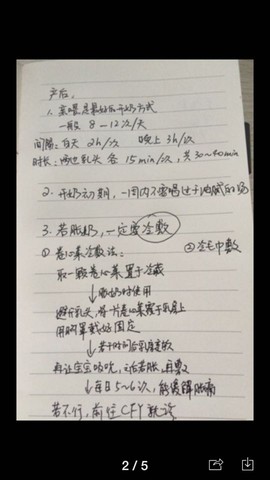 产后:
1. 亲喂是最好的开奶方式
一般 8-12次/天
间隔: 白天 2h/次 晚上 3h/次
时长: 两边乳头 各 15min/次, 共30~40min
2. 开奶初期, 一周内不要喝过于油腻的汤
3. 若胀奶, 一定要冷敷
① 卷心菜冷敷法: ② 冷毛巾敷
取一颗卷心菜置于冷藏
↓胀奶时使用
避开乳头, 将一片卷心菜覆于乳房上
用胸罩或固定
↓若干时间后乳房变软
再让宝宝吸吮, 之后若胀, 再敷
↓每日5~6次, 能缓解胀痛
若不行, 前往CFY就诊
2/5